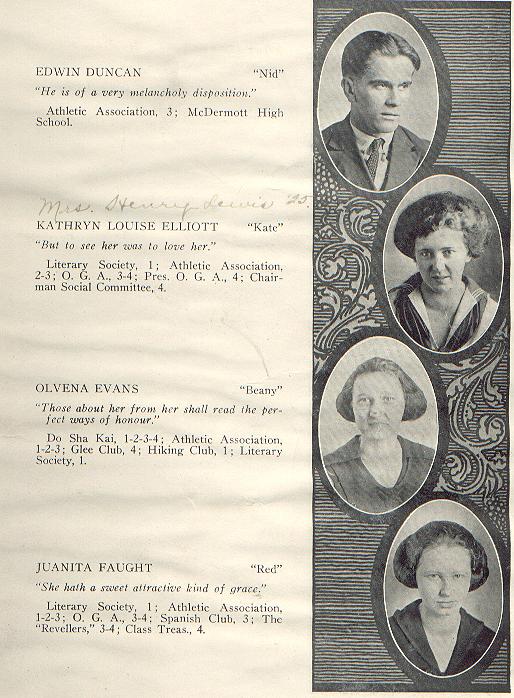 EDWIN DUNCAN "Nid"
"He is of a very melancholy disposition."
Athletic Association, 3; McDermott High
School.
Mrs. Henry Lewis '25.
KATHRYN LOUISE ELLIOTT "Kate"
"But to see her was to love her."
Literary Society, 1; Athletic Association,
2-3; O. G. A., 3-4; Pres. O. G. A., 4; Chair-
man Social Committee, 4.
OLVENA EVANS "Beany"
"Those about her from her shall read the per-
fect ways of honour."
Do Sha Kai, 1-2-3-4; Athletic Association,
1-2-3; Glee Club, 4; Hiking Club, 1; Literary
Society, 1.
JUANITA FAUGHT "Red"
"She hath a sweet attractive kind of grace."
Literary Society, 1; Athletic Association,
1-2-3; O. G. A., 3-4; Spanish Club, 3; The
"Revellers," 3-4; Class Treas., 4.